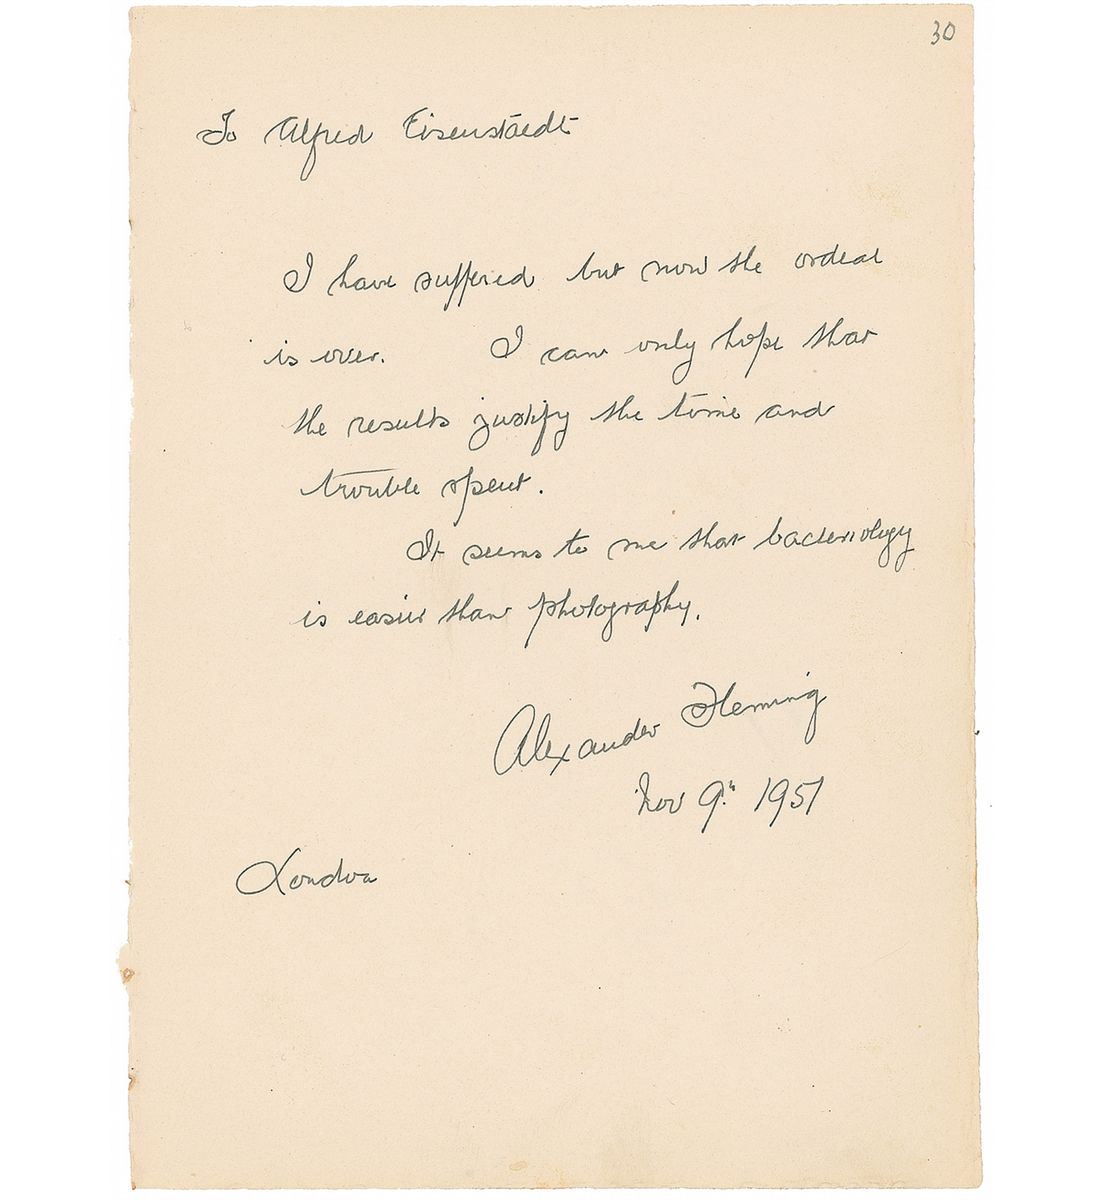 30
To Alfred Eisenstaedt
I have suffered but now the ordeal
is over. I can only hope that
the results justify the time and
trouble spent.
It seems to me that bacteriology
is easier than photography.
Alexander Fleming
Nov 9th 1951
London